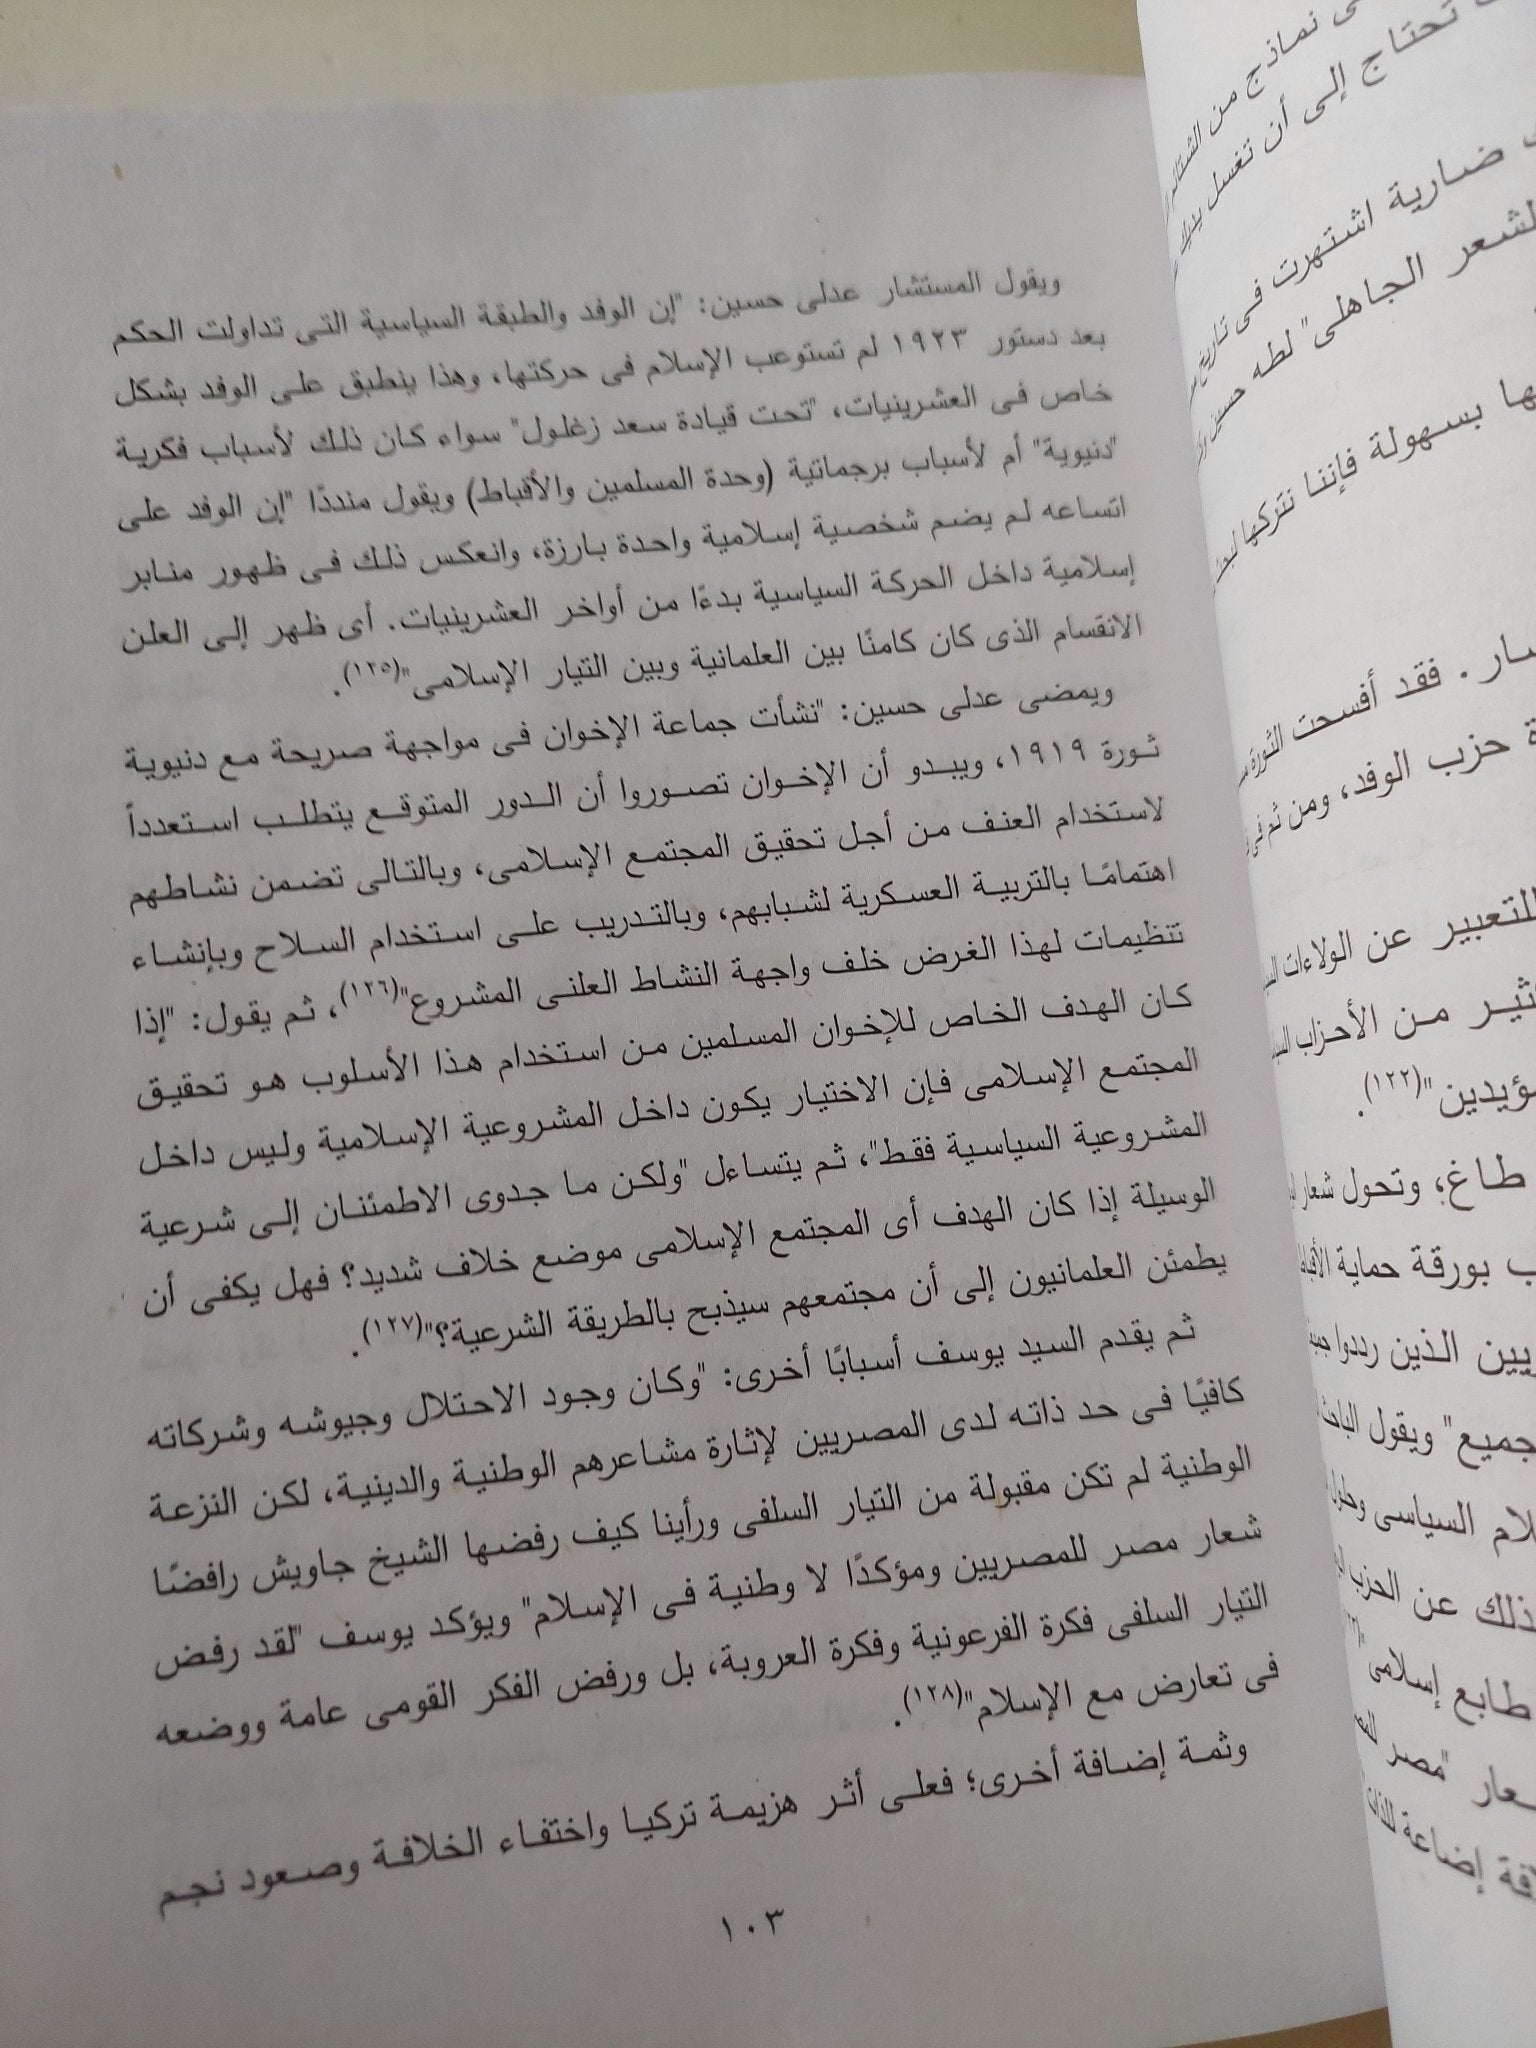 ويقول المستشار عدلى حسين: "إن الوفد والطبقة السياسية التى تداولت الحكم
بعد دستور ١٩٢٣ لم تستوعب الإسلام فى حركتها، وهذا ينطبق على الوفد بشكل
خاص فى العشرينيات، "تحت قيادة سعد زغلول" سواء كان ذلك لأسباب فكرية
"دنيوية" أم لأسباب برجماتية (وحدة المسلمين والأقباط) ويقول منددًا "إن الوفد على
اتساعه لم يضم شخصية إسلامية واحدة بارزة، وانعكس ذلك فى ظهور منابر
إسلامية داخل الحركة السياسية بدءًا من أواخر العشرينيات. أى ظهر إلى العلن
الانقسام الذى كان كامنًا بين العلمانية وبين التيار الإسلامى"(١٢٥).
ويمضى عدلى حسين: "نشأت جماعة الإخوان فى مواجهة صريحة مع دنيوية
ثورة ١٩١٩، ويبدو أن الإخوان تصوروا أن الدور المتوقع يتطلب استعدداً
لاستخدام العنف من أجل تحقيق المجتمع الإسلامى، وبالتالى تضمن نشاطهم
اهتمامًا بالتربية العسكرية لشبابهم، وبالتدريب على استخدام السلاح وبإنشاء
تنظيمات لهذا الغرض خلف واجهة النشاط العلنى المشروع"(١٢٦)، ثم يقول: "إذا
كان الهدف الخاص للإخوان المسلمين من استخدام هذا الأسلوب هو تحقيق
المجتمع الإسلامى فإن الاختيار يكون داخل المشروعية الإسلامية وليس داخل
المشروعية السياسية فقط"، ثم يتساءل "ولكن ما جدوى الاطمئنان إلى شرعية
الوسيلة إذا كان الهدف أى المجتمع الإسلامى موضع خلاف شديد؟ فهل يكفى أن
يطمئن العلمانيون إلى أن مجتمعهم سيذبح بالطريقة الشرعية؟"(١٢٧).
ثم يقدم السيد يوسف أسبابًا أخرى: "وكان وجود الاحتلال وجيوشه وشركاته
كافيًا فى حد ذاته لدى المصريين لإثارة مشاعرهم الوطنية والدينية، لكن النزعة
الوطنية لم تكن مقبولة من التيار السلفى ورأينا كيف رفضها الشيخ جاويش رافضًا
شعار مصر للمصريين ومؤكدًا لا وطنية فى الإسلام" ويؤكد يوسف "لقد رفض
التيار السلفى فكرة الفرعونية وفكرة العروبة، بل ورفض الفكر القومى عامة ووضعه
فى تعارض مع الإسلام"(١٢٨).
وثمة إضافة أخرى؛ فعلى أثر هزيمة تركيا واختفاء الخلافة وصعود نجم
١٠٣
نماذج من الشتائم
تحتاج إلى أن تغسل يديك
ضارية اشتهرت فى تاريخ
الجاهلى" لطه حسين
بسهولة فإننا نتركها
فقد أفسحت الثورة
حزب الوفد، ومن ثم فى
للتعبير عن الولاءات
من الأحزاب
(١٢٢).
طاغ؛ وتحول شعار
بورقة حماية
الذين رددوا
جميع" ويقول الباحث
السياسى وحلول
ذلك عن الحزب
طابع إسلامى"
"مصر
إضاعة للذات